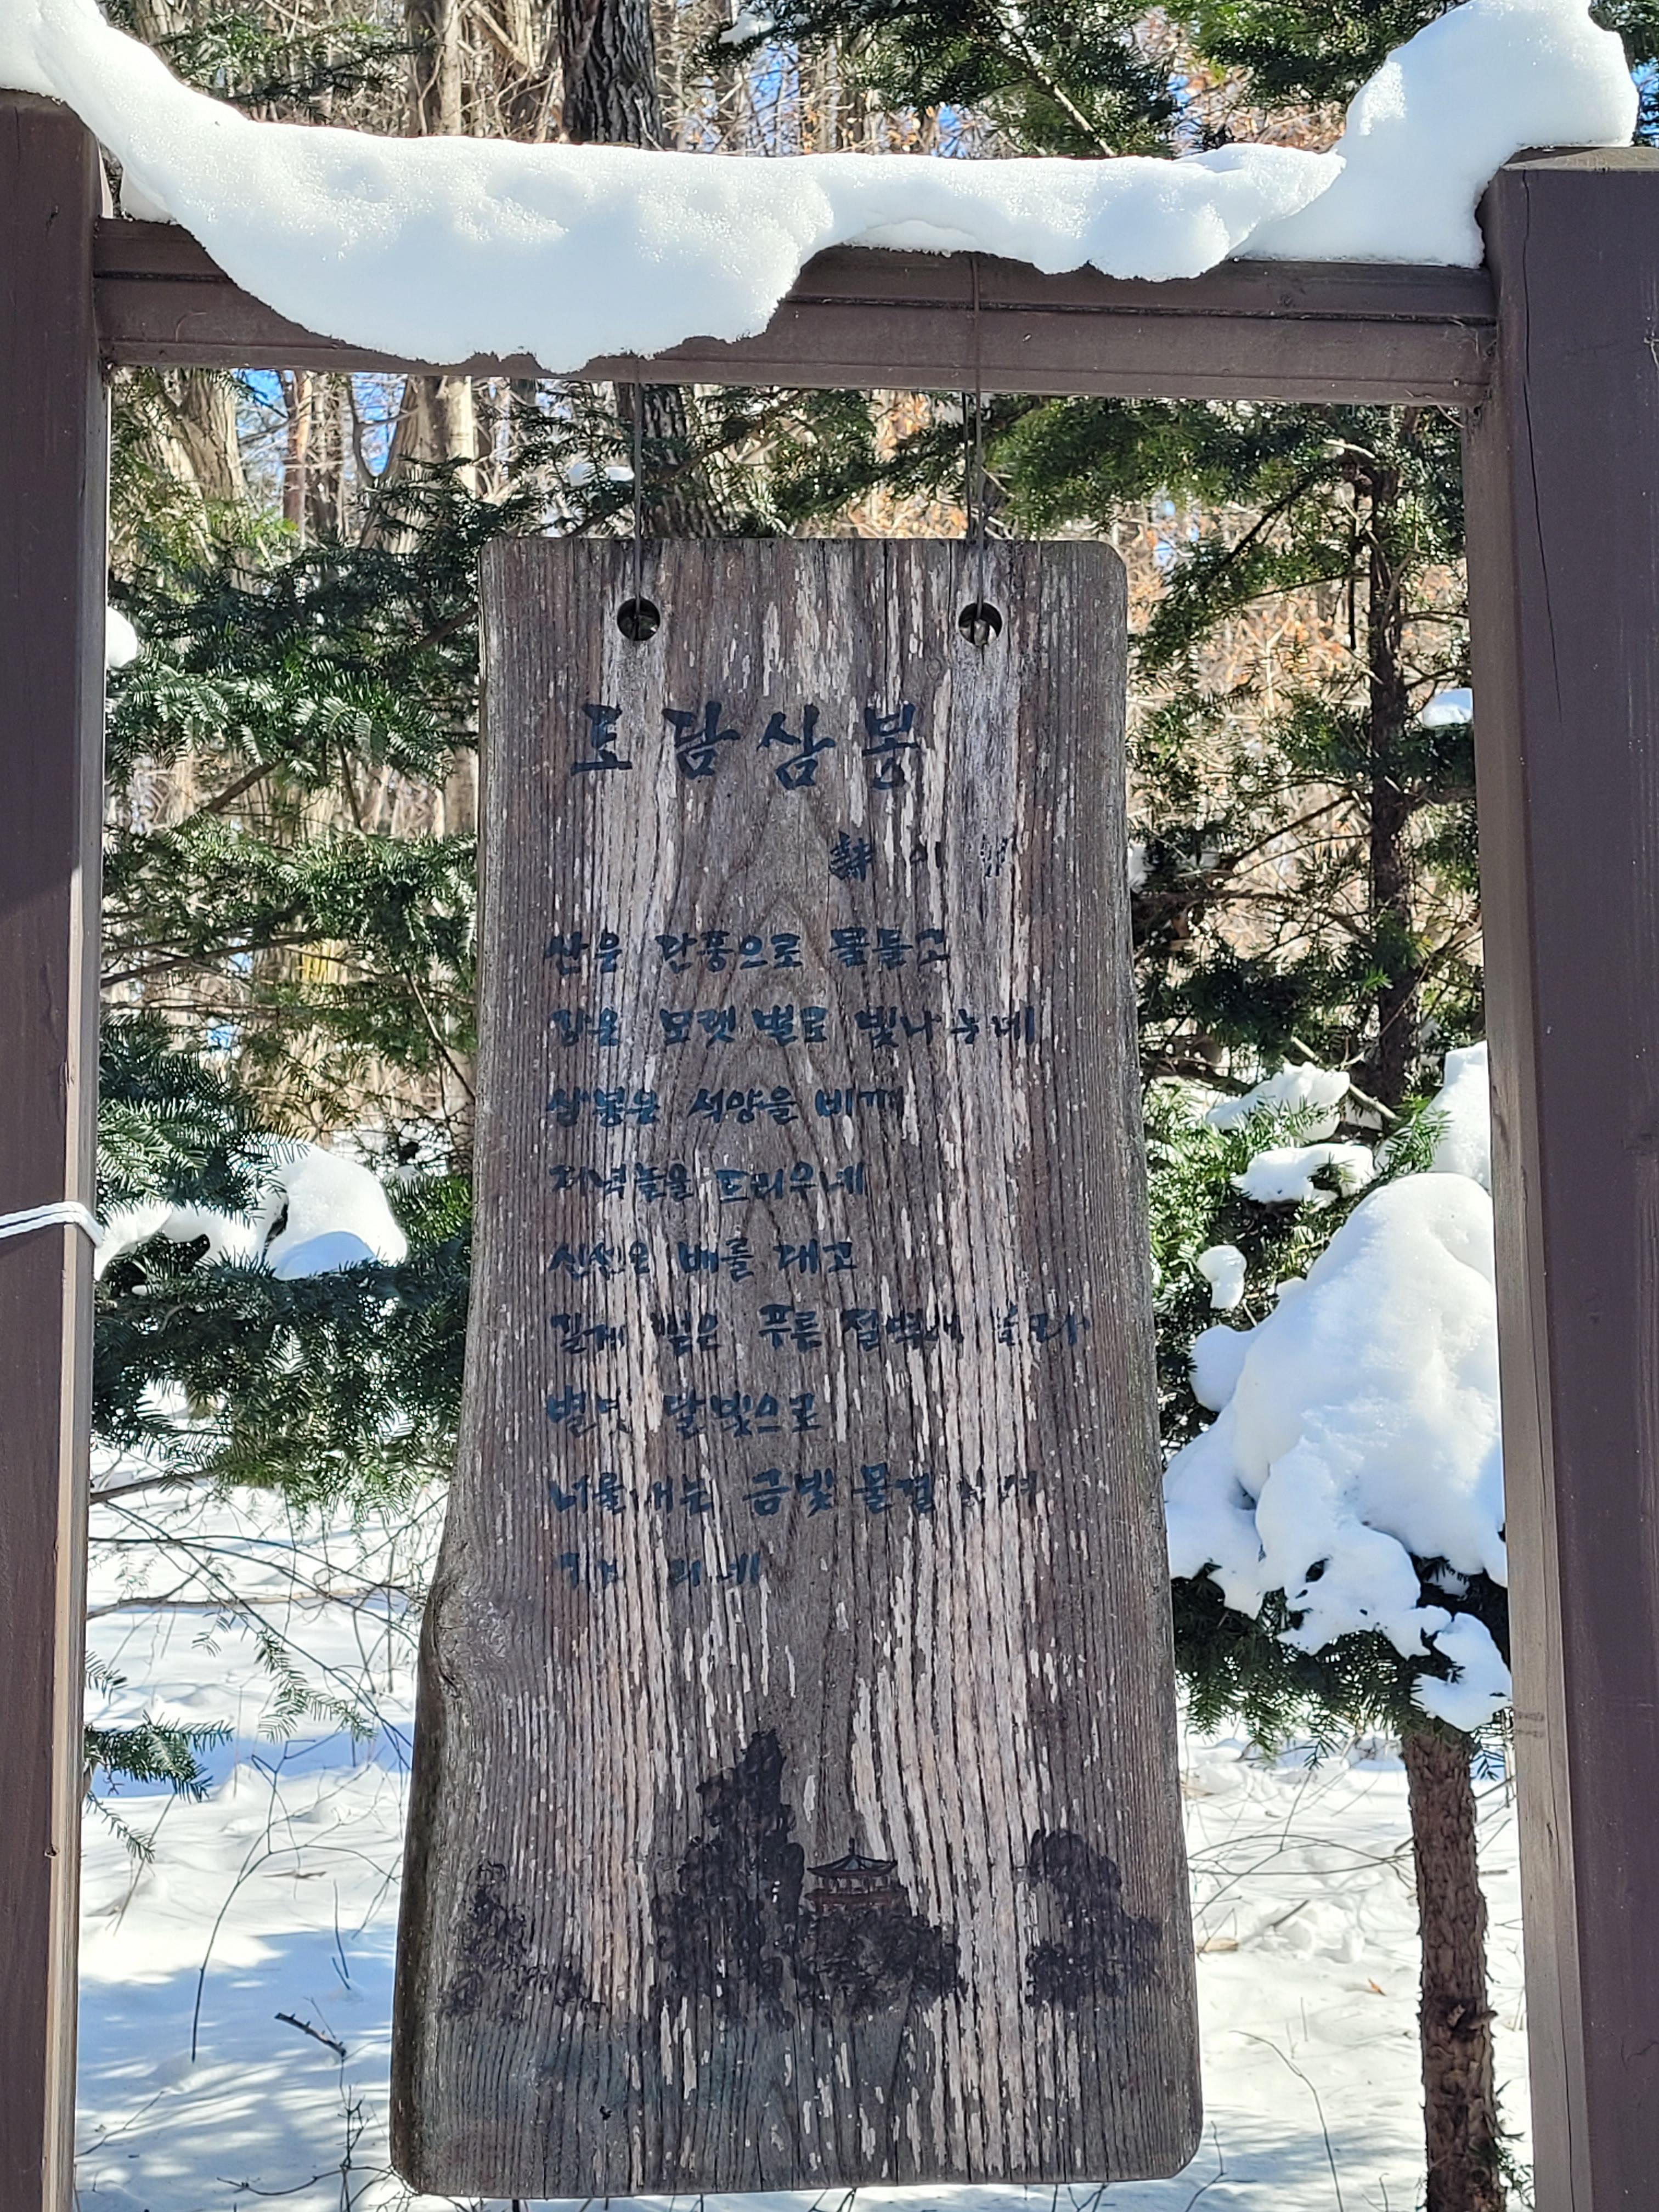 도담삼봉
이
산은 단풍으로 물들고
강은 모랫벌로 빛나는데
삼봉은 석양을 비껴
저녁놀을 드리우네
신선은 배를 대고
길게 뻗은 푸른 절벽에 올라
별빛 달빛으로
너울대는 금빛 물결